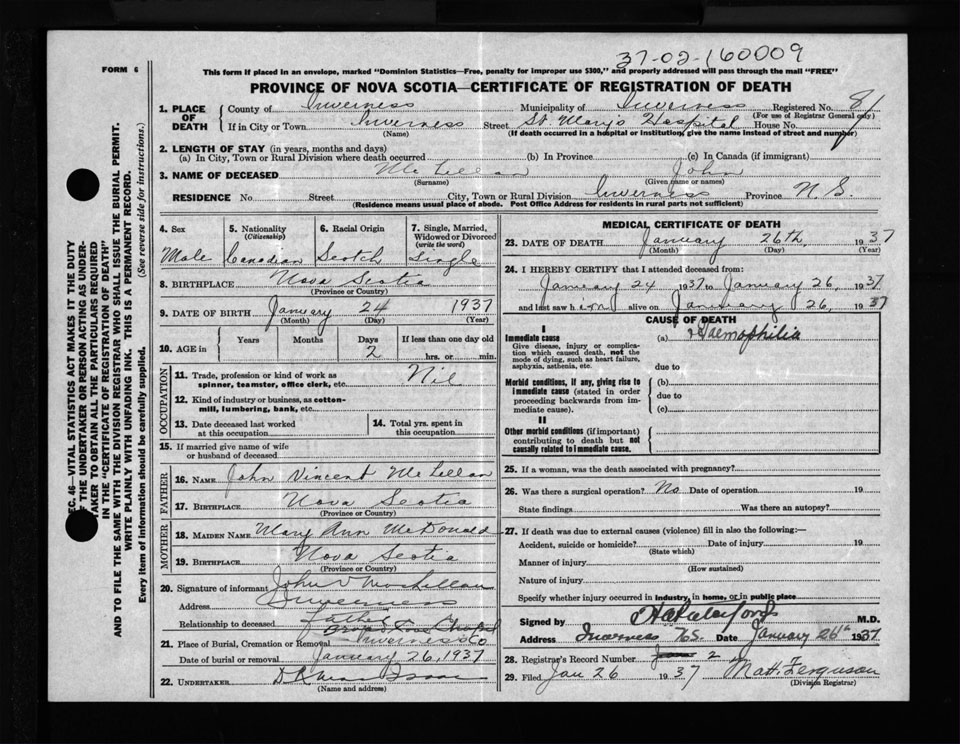 37-02-160009
FORM 6
This form if placed in an envelope, marked "Dominion Statistics—Free, penalty for improper use $300," and properly addressed will pass through the mail "FREE"
PROVINCE OF NOVA SCOTIA—CERTIFICATE OF REGISTRATION OF DEATH
1. PLACE OF DEATH
County of Inverness Municipality of Inverness Registered No. 81
(For use of Registrar General only)
If in City or Town Inverness Street St. Mary's Hospital House No.
(Name) (If death occurred in a hospital or institution, give the name instead of street and number)
2. LENGTH OF STAY (in years, months and days)
(a) In City, Town or Rural Division where death occurred (b) In Province (c) In Canada (if immigrant)
3. NAME OF DECEASED McLellan John
(Surname) (Given name or names)
RESIDENCE No. Street City, Town or Rural Division Inverness Province N. S.
(Residence means usual place of abode. Post Office Address for residents in rural parts not sufficient)
4. Sex
Male
5. Nationality
(Citizenship)
Canadian
6. Racial Origin
Scotch
7. Single, Married, Widowed or Divorced
(write the word)
Single
8. BIRTHPLACE Nova Scotia
(Province or Country)
9. DATE OF BIRTH January 24 1937
(Month) (Day) (Year)
10. AGE in
Years Months Days If less than one day old
2 hrs. or min.
OCCUPATION
11. Trade, profession or kind of work as spinner, teamster, office clerk, etc. Nil
12. Kind of industry or business, as cotton-mill, lumbering, bank, etc.
13. Date deceased last worked at this occupation
14. Total yrs. spent in this occupation
15. If married give name of wife or husband of deceased
FATHER
16. NAME John Vincent McLellan
17. BIRTHPLACE Nova Scotia
(Province or Country)
MOTHER
18. MAIDEN NAME Mary Ann McDonald
19. BIRTHPLACE Nova Scotia
(Province or Country)
20. Signature of informant John V McLellan
Address Inverness
Relationship to deceased father
21. Place of Burial, Cremation or Removal Inverness Co
Date of burial or removal January 26, 1937
22. UNDERTAKER
(Name and address)
MEDICAL CERTIFICATE OF DEATH
23. DATE OF DEATH January 26th, 1937
(Month) (Day) (Year)
24. I HEREBY CERTIFY that I attended deceased from:
January 24 1937 to January 26, 1937
and last saw him alive on January 26, 1937
CAUSE OF DEATH
I
Immediate cause
Give disease, injury or complication which caused death, not the mode of dying, such as heart failure, asphyxia, asthenia, etc.
(a) Haemophilia
due to
Morbid conditions, if any, giving rise to immediate cause (stated in order proceeding backwards from immediate cause).
(b)
due to
(c)
II
Other morbid conditions (if important) contributing to death but not causally related to immediate cause.
25. If a woman, was the death associated with pregnancy?
26. Was there a surgical operation? No Date of operation 19
State findings Was there an autopsy?
27. If death was due to external causes (violence) fill in also the following:—
Accident, suicide or homicide? Date of injury 19
(State which)
Manner of injury
(How sustained)
Nature of injury
Specify whether injury occurred in industry, in home, or in public place
Signed by M.D.
Address Inverness N.S. Date January 26th 1937
28. Registrar's Record Number 2
29. Filed Jan 26 1937 Matt. Ferguson
(Division Registrar)
SEC. 46—VITAL STATISTICS ACT MAKES IT THE DUTY
OF THE UNDERTAKER OR PERSON ACTING AS UNDER-
TAKER TO OBTAIN ALL THE PARTICULARS REQUIRED
IN THE "CERTIFICATE OF REGISTRATION OF DEATH"
AND TO FILE THE SAME WITH THE DIVISION REGISTRAR WHO SHALL ISSUE THE BURIAL PERMIT.
WRITE PLAINLY WITH UNFADING INK. THIS IS A PERMANENT RECORD.
Every item of information should be carefully supplied. (See reverse side for instructions.)